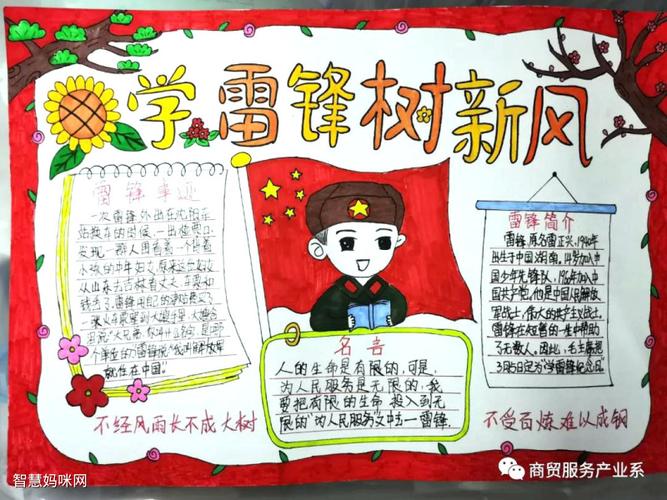 学雷锋树新风
雷锋事迹
一次雷锋外出在沈阳车
站换车的时候,一出检票口,
发现一群人围着一个背着
小孩的中年妇女,原来这位妇女
从山东去吉林看丈夫,车票和
钱丢了,雷锋用自己的津贴费买了
一张火车票塞到大嫂手里,大嫂含
泪说:"大兄弟,你叫什么名字,是哪
个单位的?"雷锋说:"我叫解放军
就住在中国"
名言
人的生命是有限的,可是,
为人民服务是无限的,我
要把有限的生命,投入到无
限的"为人民服务"之中去——雷锋.
雷锋简介
雷锋,原名雷正兴,1940年
出生于中国湖南.
国少年先锋队,1960年加入中
国共产党,他是中国人民解放
军战士,伟大的共产主义战士,
雷锋在短暂的一生中帮助
了无数人,因此,毛主席把
3月5日定为"学雷锋纪念日"
不经风雨长不成大树
不受百炼难以成钢
智慧妈咪网
商贸服务产业系